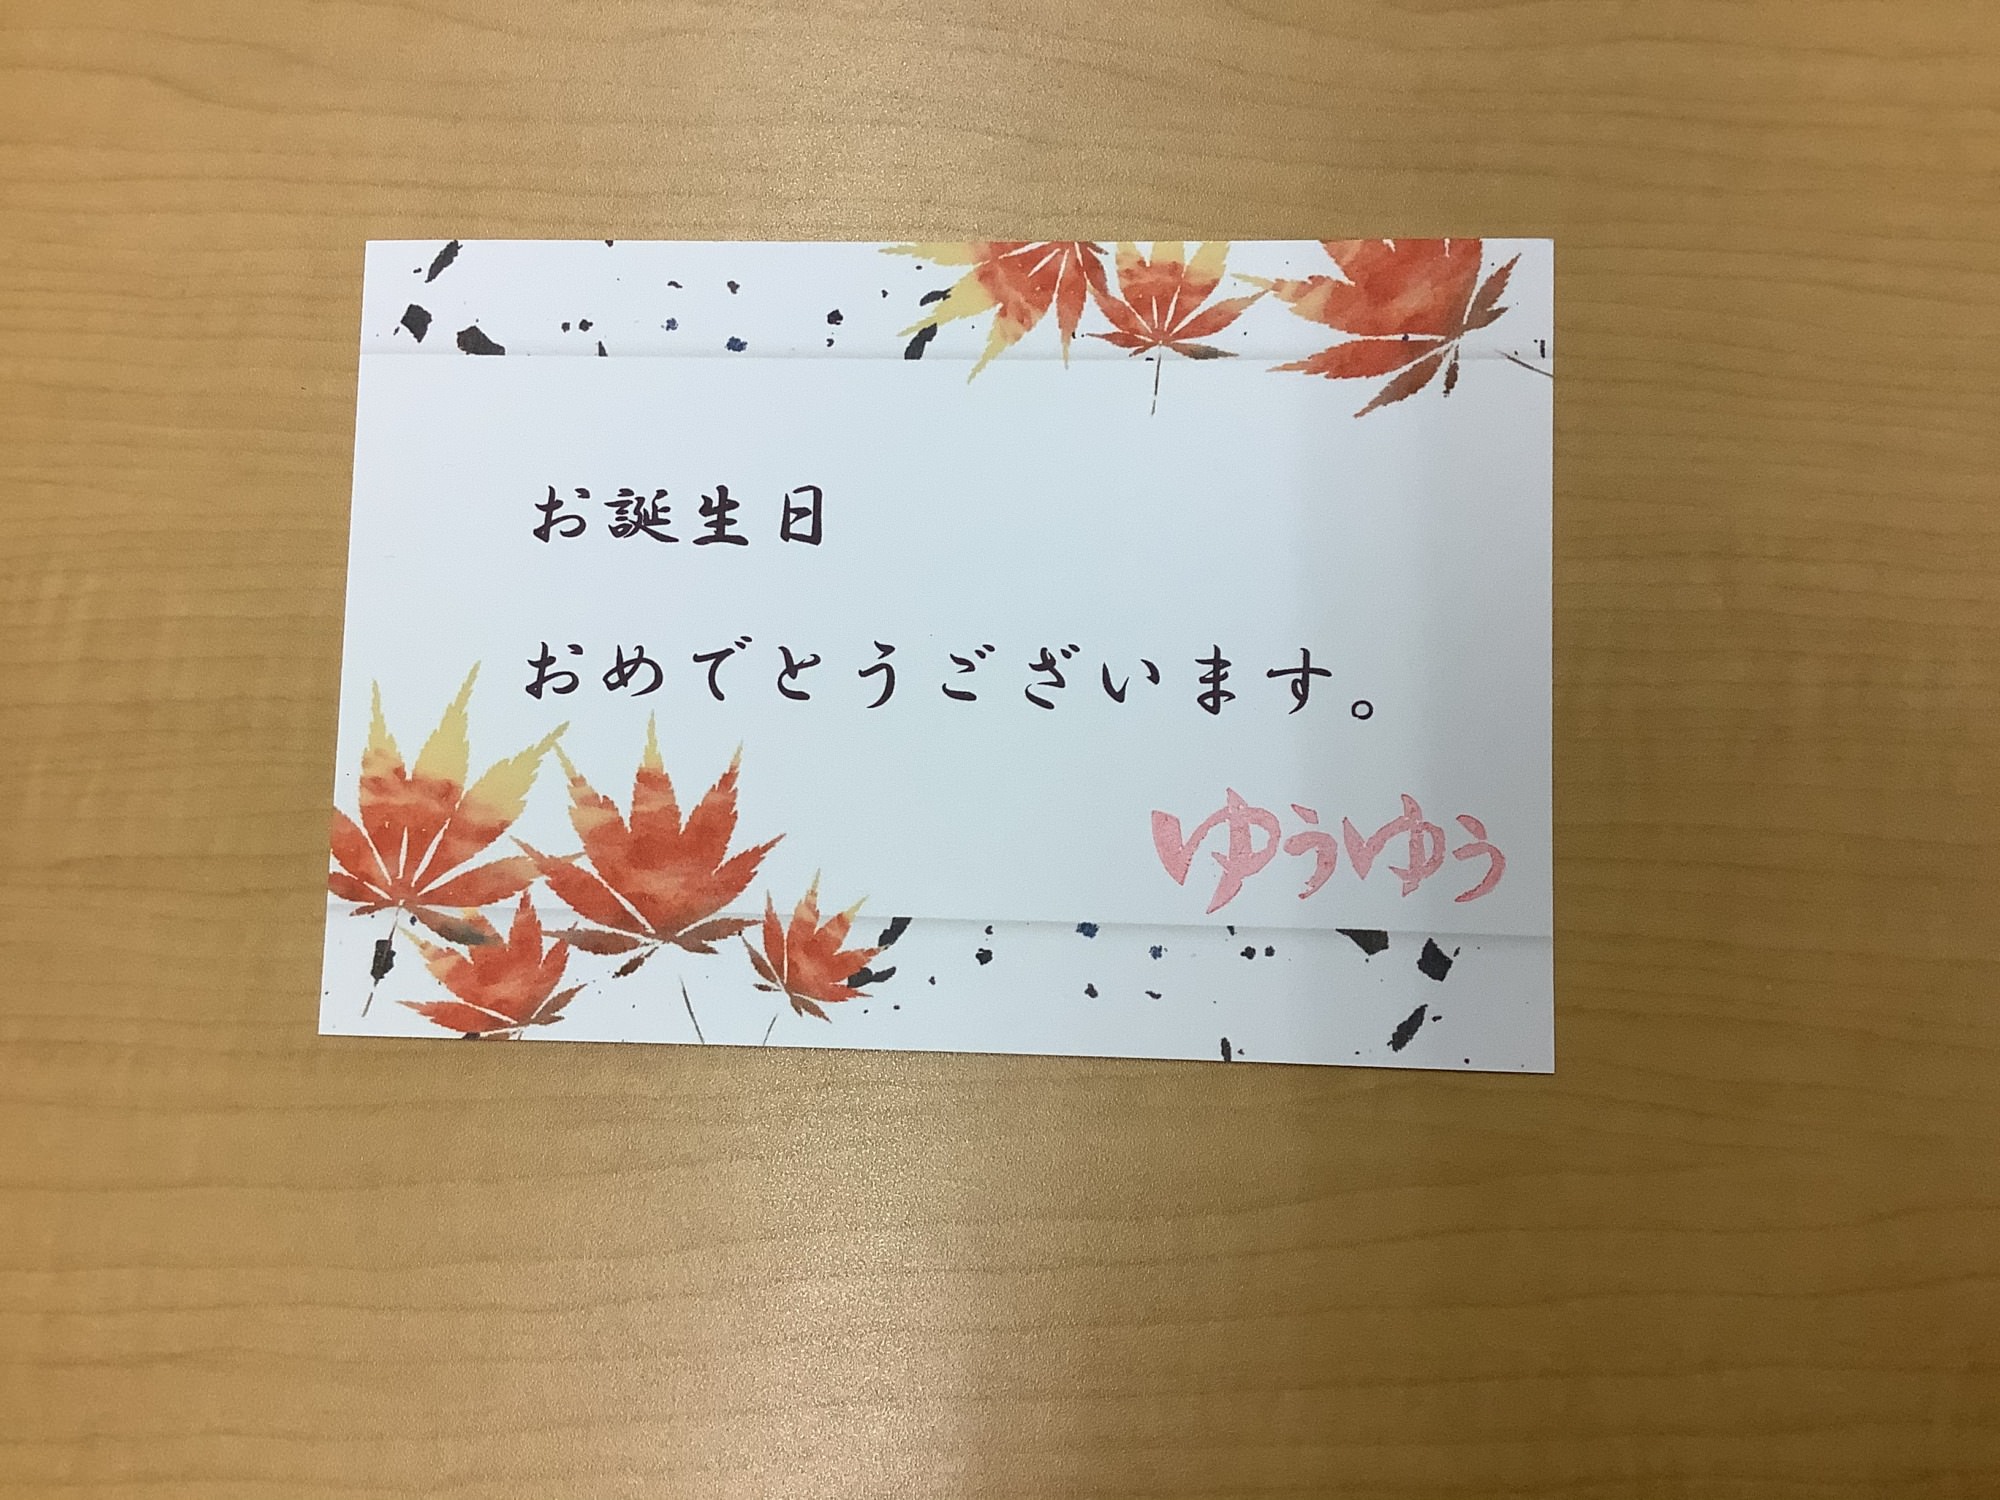 お誕生日
おめでとうございます。
ゆうゆう